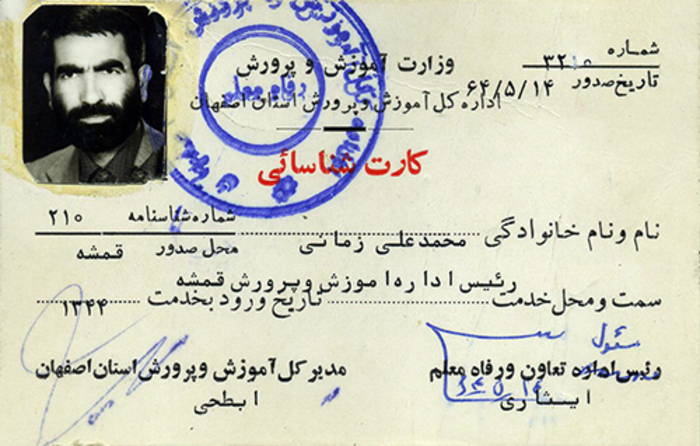 وزارت آموزش و پرورش
شماره ۳۲۱۰
اداره کل آموزش و پرورش استان اصفهان
تاریخ صدور ۶۴/۵/۱۴
رفاه معلم
کارت شناسائی
نام و نام خانوادگی محمدعلی زمانی شماره شناسنامه ۲۱۰
محل صدور قمشه
سمت و محل خدمت رئیس اداره اموزش وپرورش قمشه تاریخ ورود بخدمت ۱۳۴۴
مسئول
رئیس اداره تعاون ورفاه معلم
ایثاری
مدیر کل آموزش وپرورش استان اصفهان
ابطحی